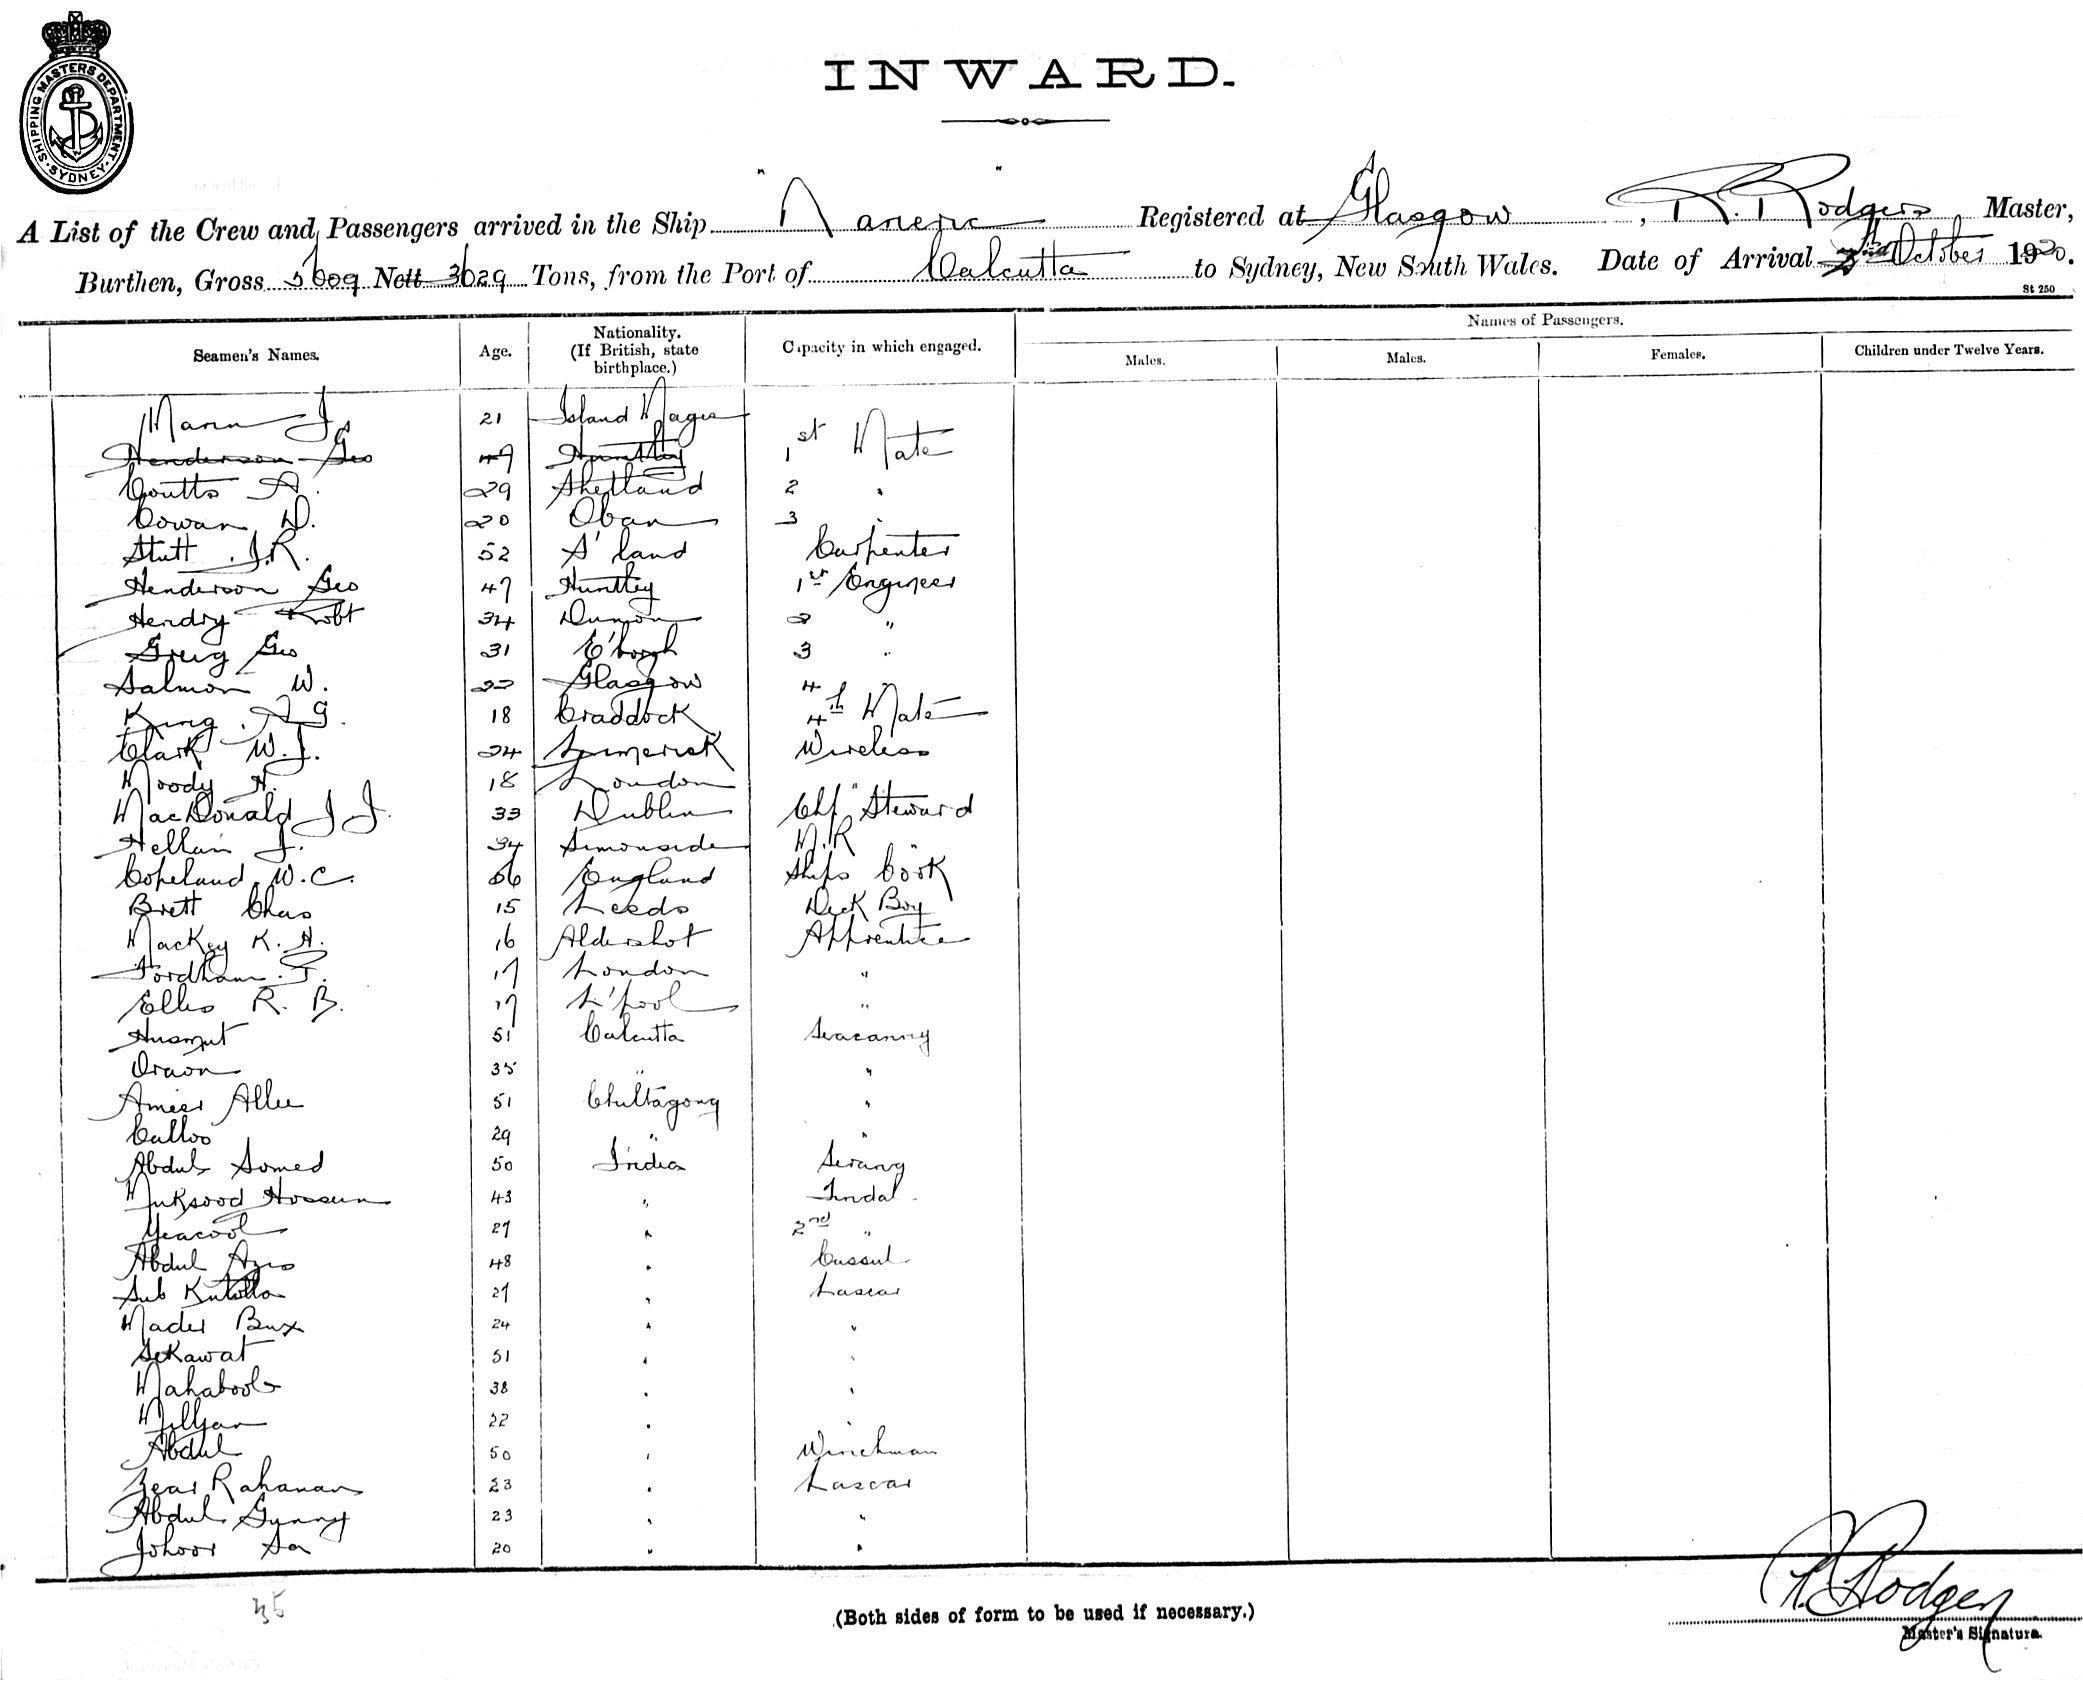 SHIPPING MASTERS DEPARTMENT · SYDNEY ·
INWARD.
A List of the Crew and Passengers arrived in the Ship " Naneric " Registered at Glasgow, R. Rodgers Master,
Burthen, Gross 5609 Nett 3629 Tons, from the Port of Calcutta to Sydney, New South Wales. Date of Arrival October 1920.
St 250
Seamen's Names. Age. Nationality. (If British, state birthplace.) Capacity in which engaged. Names of Passengers.
Males. Males. Females. Children under Twelve Years.
Mann J. 21 Island Magee 1st Mate
Henderson Geo 47 Huntley
Coutts A. 29 Shetland 2 "
Cowan D. 20 Oban 3 "
Stutt J.R. 52 S'land Carpenter
Henderson Geo 47 Huntley 1st Engineer
Hendry Robt 34 Dunoon 2 "
Greig Geo 31 E'borgh 3 "
Salmon W. 22 Glasgow 4
King A G. 18 Craddock 4th Mate
Clark W.J. 24 Limerick Wireless
Moody H. 18 London "
MacDonald J J. 33 Dublin Chf Steward
J. 34 Simonside
Copeland W.C. 56 England Ships Cook
Brett Chas 15 Leeds Deck Boy
Mackey K. H. 16 Aldershot Apprentice
Fordham F. 17 London "
Ellis R. B. 17 L'pool "
Husmut 51 Calcutta Seacanny
Oraon 35 " "
Ameer Allee 51 Chittagong "
Calloo 29 " "
Abdul Somed 50 India Serang
Muksood Hossein 43 " Tindal
Yeacool 27 " 2nd "
Abdul Azis 48 " Cussul
Sub Kutolla 27 " Lascar
Mader Bux 24 " "
Sekawat 51 " "
Mahabool 38 " "
Milljan 22 " "
Abdul 50 " Winchman
Zear Rahaman 23 " Lascar
Abdul Gunny 23 " "
Johoor Sa 20 " "
35
(Both sides of form to be used if necessary.)
R. Rodgers
Master's Signature.